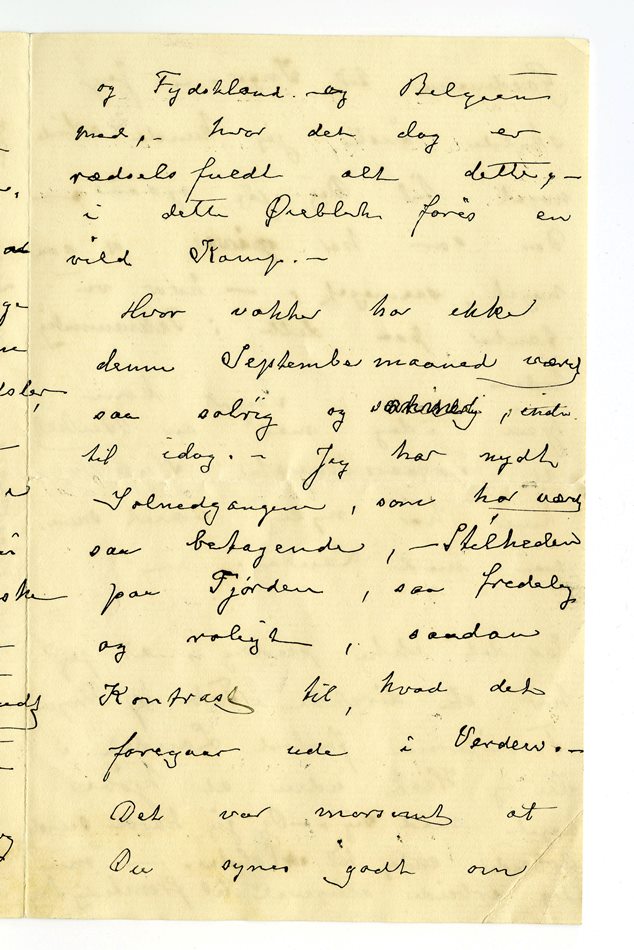 og Tydskland. og Belgien
med, - hvor det dog er
rædselsfuldt alt dette, -
i dette Øieblik føres en
vild Kamp. -
Hvor vakker har ikke
denne Septembermaaned værd
saa solrig og indtil
til idag. - Jeg har nydt
Solnedgangene, som har værd
saa betagende, - Stilheden
paa Fjorden, saa fredelig
og roligt, saadan
Kontrast til, hvad det
foregaar ude i Verden. -
Det var morsomt at
Du synes godt om